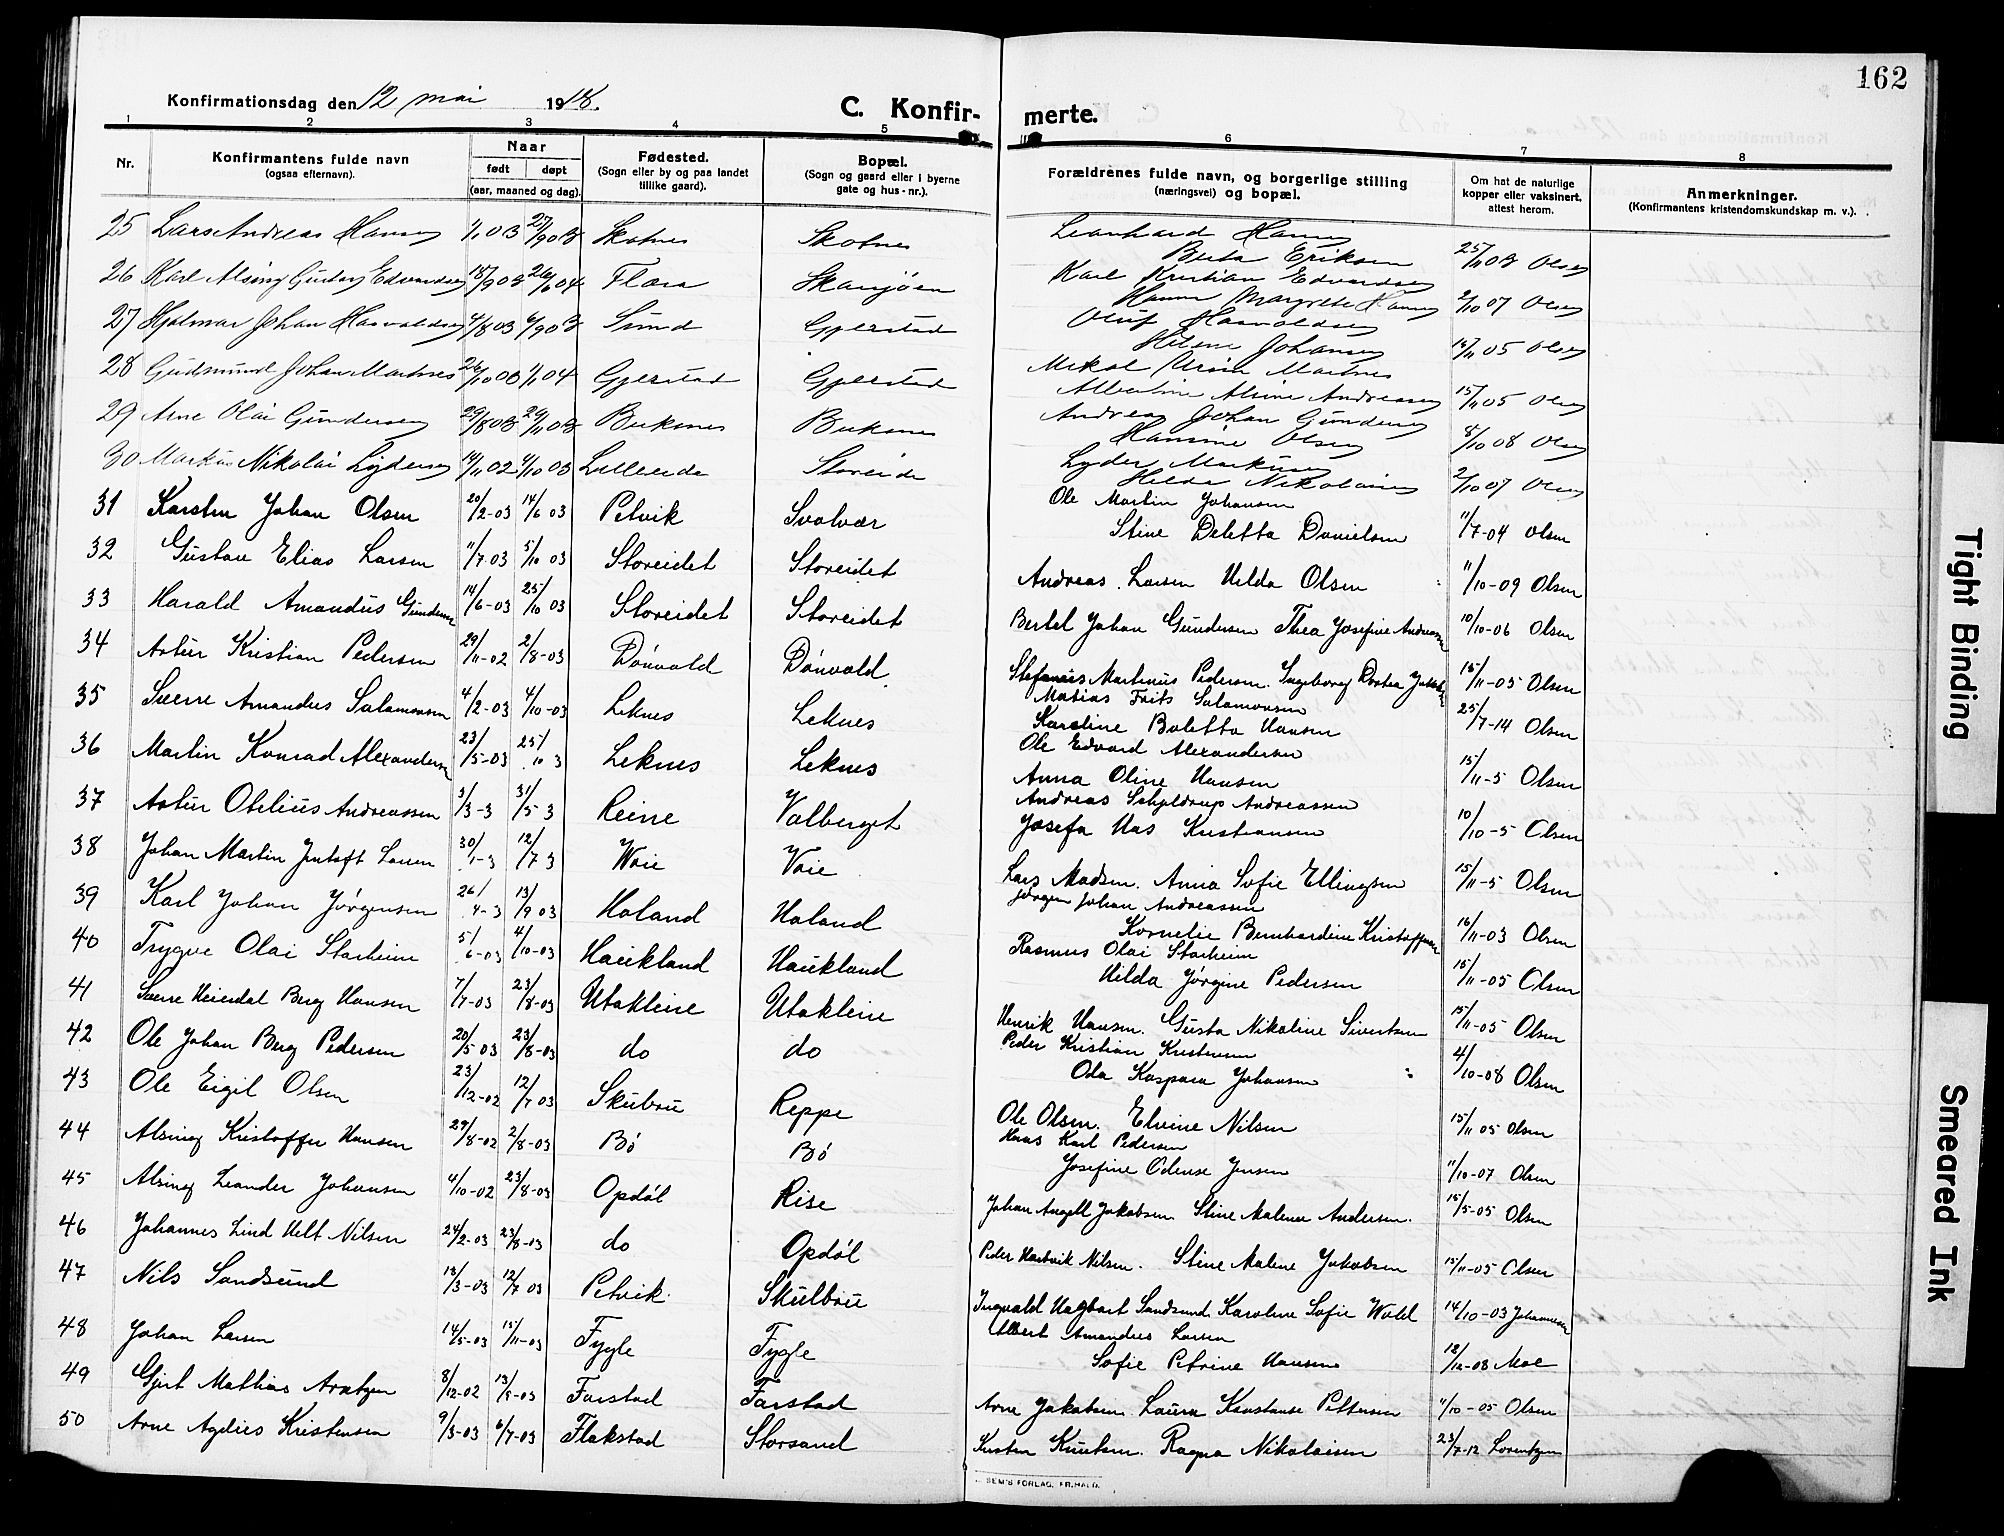 162
Konfirmationsdag den 12 mai 1918.
C. Konfirmerte.
1 2 3 4 5 6 7 8
Nr.
Konfirmantens fulde navn
(ogsaa efternavn).
Naar
født døpt
(aar, maaned og dag).
Fødested.
(Sogn eller by og paa landet
tillike gaard).
Bopæl.
(Sogn og gaard eller i byerne
gate og hus-nr.).
Forældrenes fulde navn, og borgerlige stilling
(næringsvei) og bopæl.
Om hat de naturlige
kopper eller vaksinert,
attest herom.
Anmerkninger.
(Konfirmantens kristendomskundskap m. v.).
25 Lars Andreas Hansen 1/1 03 27/9 03 Skotnes Skotnes Leonhard Hansen
Berta Eriksen 25/11 03 Olsen
26 Karl Alsing Gustav Edvardsen 18/9 03 26/6 04 Flæsa Skansjøen Karl Kristian Edvardsen
Hanna Margrete Hansen 2/10 07 Olsen
27 Hjalmar Johan Hasvoldsen 4/8 03 6/9 03 Sund Gjerstad Oluf Hasvoldsen
Helene Johansen 14/11 05 Olsen
28 Gudmund Johan Martnes 26/10 03 1/1 04 Gjerstad Gjerstad Mikal Ursin Martnes
Albertine Alvine Andreasen 15/11 05 Olsen
29 Arne Olai Gundersen 29/8 03 29/11 03 Buksnes Buksnes Andreas Johan Gundersen
Hansine Olsen 8/10 08 Olsen
30 Markus Nikolai Lydersen 14/11 02 4/10 03 Lilleeide Storeide Lyder Markusen
Hilda Nikolaisen 2/10 07 Olsen
31 Karsten Johan Olsen 20/2-03 14/6 03 Petvik Svolvær Ole Martin Johansen
Stine Deletta Danielsen 11/7-04 Olsen
32 Gustav Elias Larsen 11/7 03 5/10 03 Storeidet Storeidet Andreas Larsen Hilda Olsen 11/10-09 Olsen
33 Harald Amandus Gundersen 14/6-03 25/10 03 Storeidet Storeidet Bertel Johan Gundersen Thea Josefine Andreassen 10/10-06 Olsen
34 Artur Kristian Pedersen 29/11-02 2/8-03 Dønvold Dønvold Stefanus Martinus Pedersen. Ingeborg Dortea 15/11-05 Olsen
35 Sverre Amandus Salamonsen 4/2-03 4/10-03 Leknes Leknes Matias Frits Salamonsen
Karoline Boletta Hansen 25/7-14 Olsen
36 Martin Konrad Alexandersen 23/5-03 25/10 3 Leknes Leknes Ole Edvard Alexandersen
Anna Oline Hansen 15/11-5 Olsen
37 Artur Otelius Andreassen 3/3-3 31/5 3 Reine Valberget Andreas Schjeldrup Andreassen
Josefa Has Kristiansen 10/10-5 Olsen
38 Johan Martin Justoft Larsen 30/1-3 12/7 3 Voie Voie Lars Madsen. Anna Sofie Ellingsen 15/11-5 Olsen
39 Karl Johan Jørgensen 26/4-3 13/9 03 Holand Holand Jørgen Johan Andreassen
Kornelie Bernhardine Kristoffersen 16/11-03 Olsen
40 Trygve Olai Starheim 5/6-03 4/10-03 Haukland Haukland Rasmus Olai Starheim
Hilda Jørgine Pedersen 15/11-05 Olsen
41 Sverre Heierdal Berg Hansen 7/7-03 23/8-03 Utakleive Utakleive Henrik Hansen. Gusta Nikoline Sivertsen 15/11-05 Olsen
42 Ole Johan Berg Pedersen 20/5-03 23/8-03 do do Peder Kristian Kristensen
Oda Kaspara Johansen 4/10-08 Olsen
43 Ole Eigil Olsen 23/12-02 12/7 03 Skulbru Reppe Ole Olsen. Elvine Nilsen 15/11 05 Olsen
44 Alsing Kristoffer Hansen 29/8-02 2/8-03 Bø Bø Hans Karl Pedersen
Josefine Odense Jensen 11/10-07 Olsen
45 Alsing Leander Johansen 4/10-02 23/8-03 Opdøl Rise Johan Angell Jakobsen Stine Malene Andersen. 15/5-05 Olsen
46 Johannes Lind Helt Nilsen 24/2-03 23/8-03 do Opdøl Peder Hartvik Nilsen. Stine Malene Jakobsen 15/11-05 Olsen
47 Nils Sandsund 13/3-03 12/7 03 Petvik Skulbru Ingvald Hagbart Sandsund Karoline Sofie Wold 14/10-03 Johannesen
48 Johan Larsen 14/5-03 15/11-03 Fygle Fygle Albert Amandus Larsen
Sofie Petrine Hansen Moe
49 Gjert Mathias Arntzen 8/12-02 13/9-03 Farstad Farstad Arne Jakobsen. Laura Konstanse Pettersen 11/10-05 Olsen
50 Arne Agdius Kristensen 9/3-03 6/7-03 Flakstad Storsand Kristen Knutsen. Ragna Nikolaisen 23/7-12 Lorentzen
SEM'S FORLAG, FR.HALD.
Tight Binding
Smeared Ink